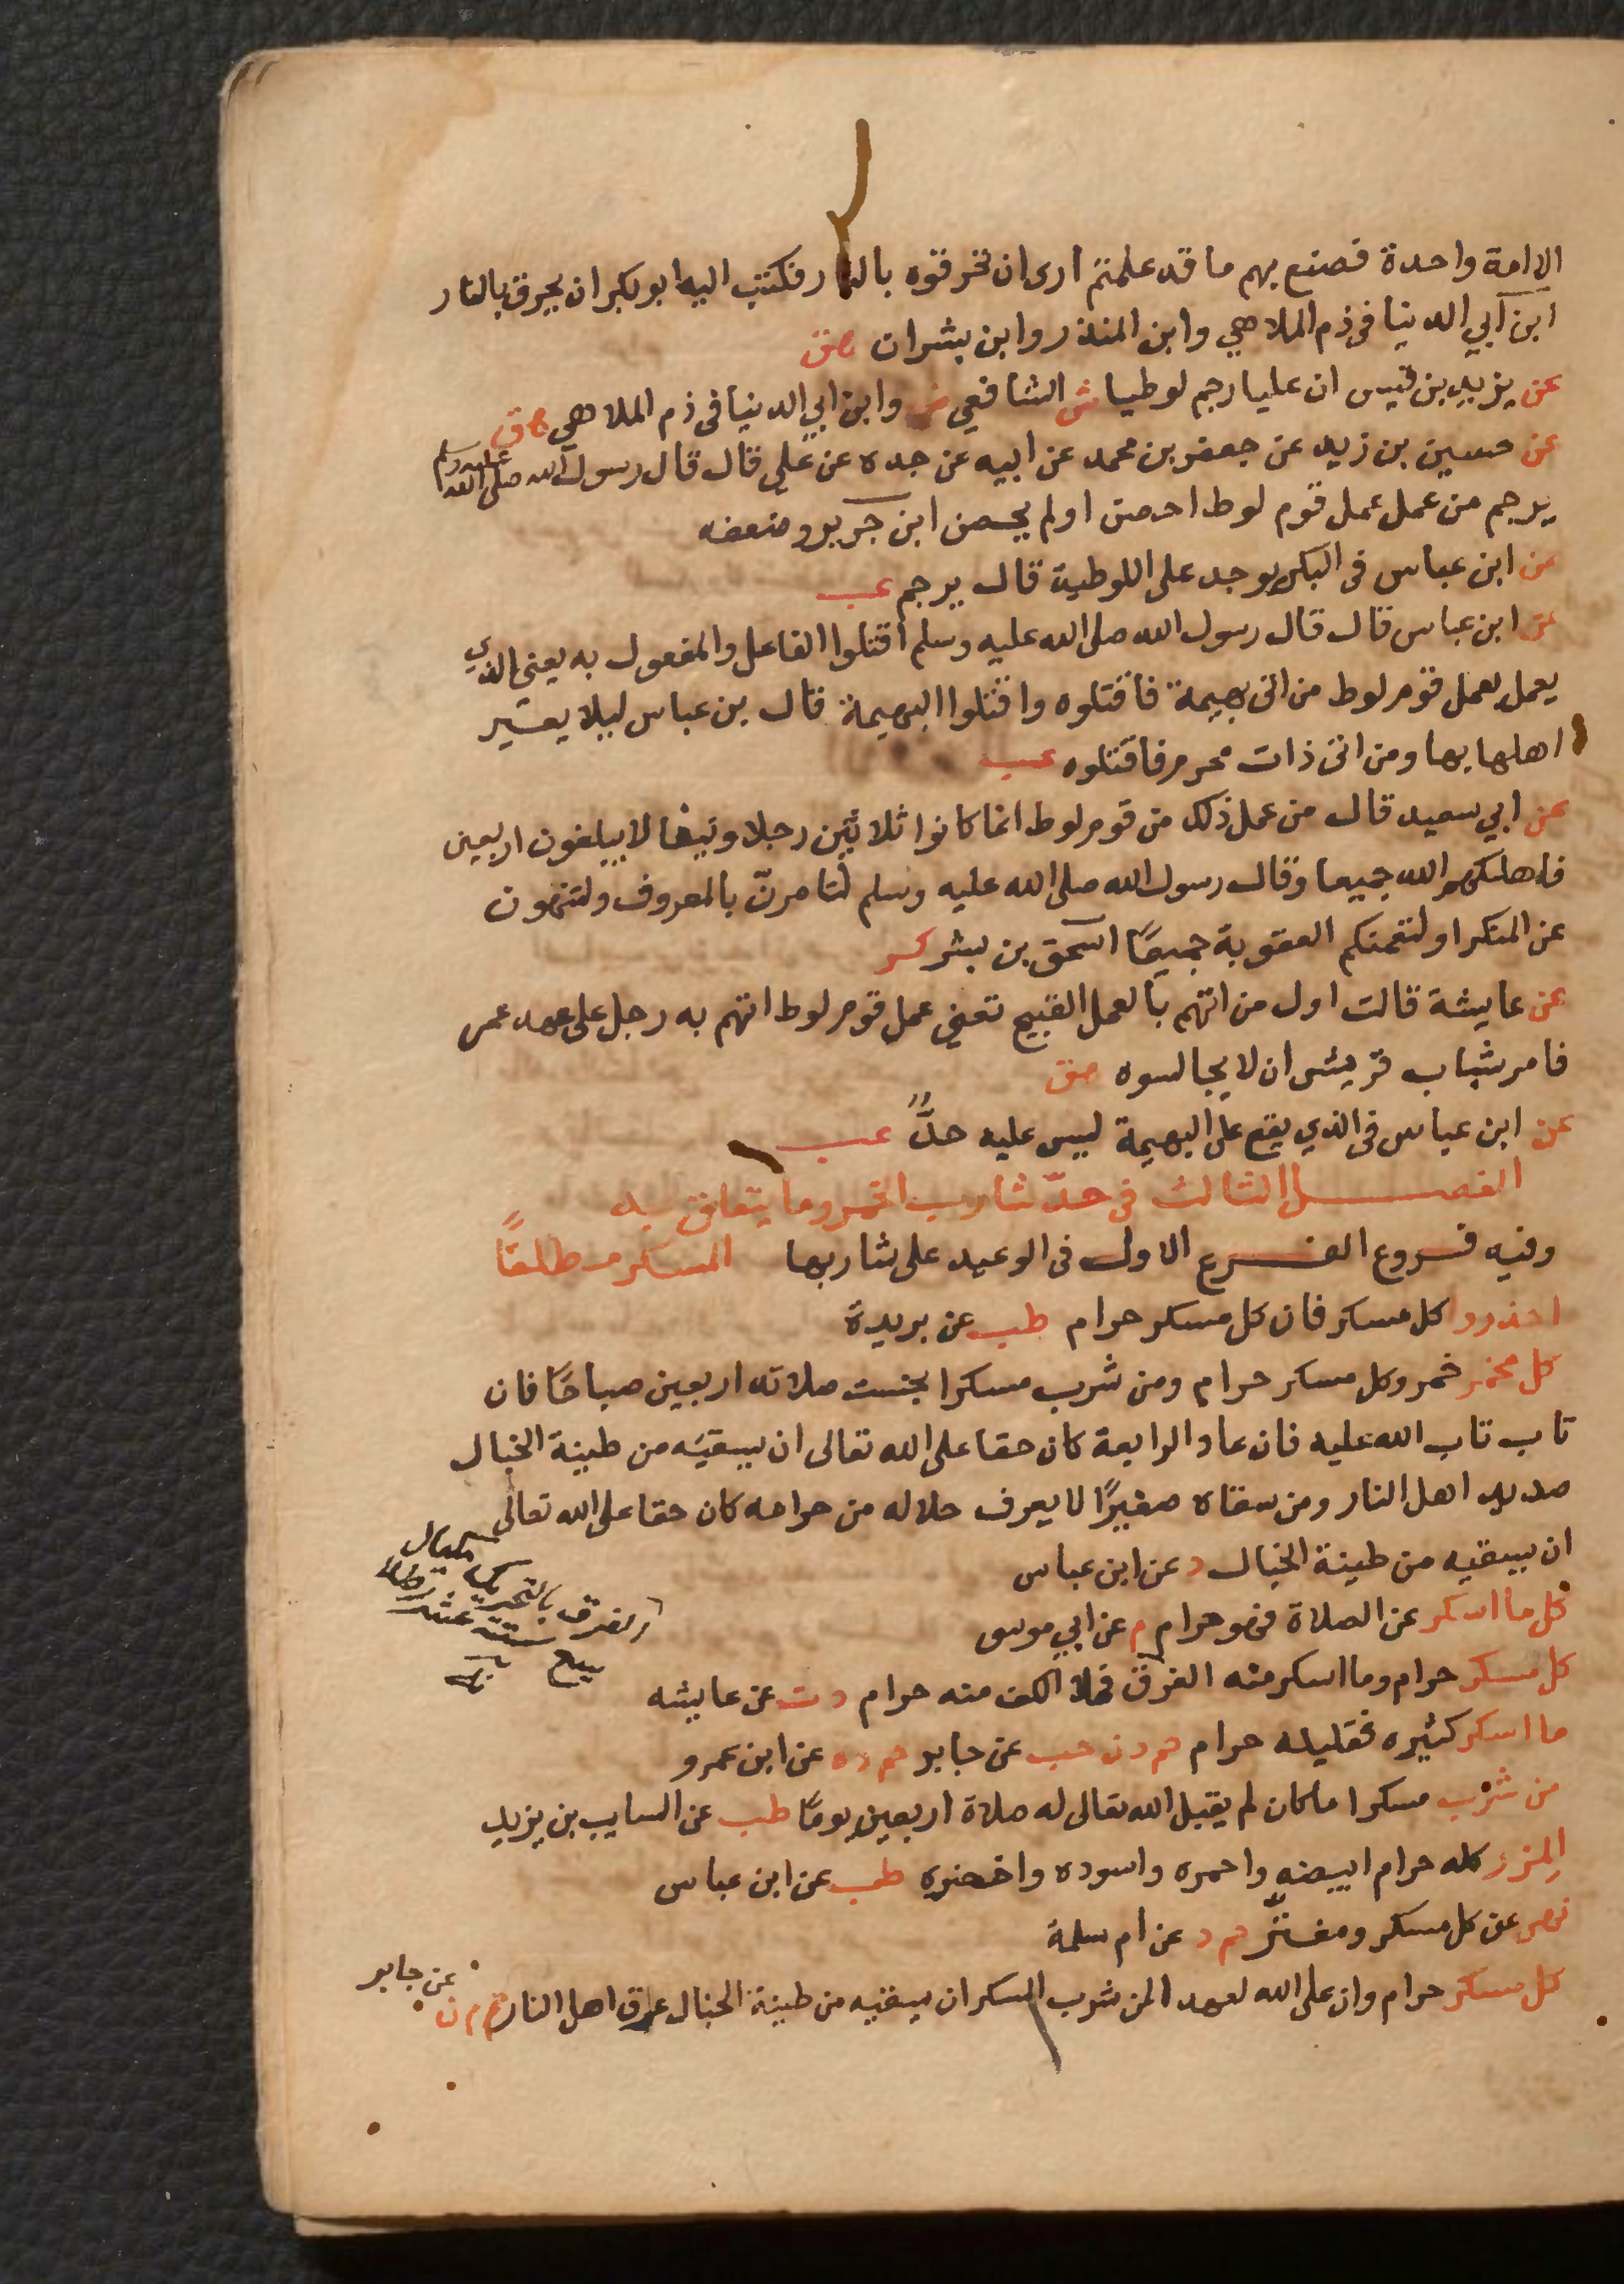 الا امة واحدة فصنع بهم ما قد علمتم ارى ان تحرقوه بالنار فكتب اليه ابو بكر ان يحرق بالنار
ابن ابي الدنيا في ذم الملاهي وابن المنذر وابن بشران هق
عن يزيد بن قيس ان عليا رجم لوطيا ش الشافعي ص وابن ابي الدنيا في ذم الملاهي هق
عن حسين بن زيد عن جعفر بن محمد عن ابيه عن جده عن علي قال قال رسول الله صلى الله عليه وسلم
يرجم من عمل عمل قوم لوط احصن او لم يحصن ابن جرير وضعفه
عن ابن عباس في البكر يوجد على اللوطية قال يرجم عب
عن ابن عباس قال قال رسول الله صلى الله عليه وسلم اقتلوا الفاعل والمفعول به يعني الذي
يعمل بعمل قوم لوط من اتى بهيمة فاقتلوه واقتلوا البهيمة قال بن عباس ليلا يعير
اهلها بها ومن اتى ذات محرم فاقتلوه عب
عن ابي سعيد قال من عمل ذلك من قوم لوط انما كانوا ثلاثين رجلا ونيفا لا يبلغون اربعين
فاهلكهم الله جميعا وقال رسول الله صلى الله عليه وسلم لتامرنّ بالمعروف ولتنهون
عن المنكر او لتعمنكم العقوبة جميعًا اسحق بن بشر كر
عن عايشة قالت اول من اتهم بالعمل القبيح تعني عمل قوم لوط اتهم به رجل على عهد عمر
فامر شباب قريش ان لا يجالسوه هق
عن ابن عباس في الذي يقع على البهيمة ليس عليه حدٌّ عب
الفصل الثالث في حدّ شارب الخمر وما يتعلق به
وفيه فروع الفرع الاول في الوعيد على شاربها المسكر مطلقًا
احذروا كل مسكر فان كل مسكر حرام طب عن بريدة
كل مخمر خمر وكل مسكر حرام ومن شرب مسكرا بخست صلاته اربعين صباحًا فان
تاب تاب الله عليه فان عاد الرابعة كان حقا على الله تعالى ان يسقيه من طينة الخبال
صديد اهل النار ومن سقاه صغيرًا لا يعرف حلاله من حرامه كان حقا على الله تعالى
ان يسقيه من طينة الخبال د عن ابن عباس
كل ما اسكر عن الصلاة فهو حرام م عن ابي موسى
الفرق بالتحريك مكيال
يسع ستة عشر رطلا
كل مسكر حرام وما اسكر منه الفرق فملا الكف منه حرام د ت عن عايشه
ما اسكر كثيره فقليله حرام حم د ن حب عن جابر حم ن ه عن ابن عمرو
من شرب مسكرا ما كان لم يقبل الله تعالى له صلاة اربعين يومًا طب عن السايب بن يزيد
المزر كله حرام ابيضه واحمره واسوده واخضره طب عن ابن عباس
نهى عن كل مسكر ومفتر حم د عن ام سلمة
كل مسكر حرام وان على الله لعهدا لمن شرب المسكر ان يسقيه من طينة الخبال عرق اهل النار حم م ن عن جابر